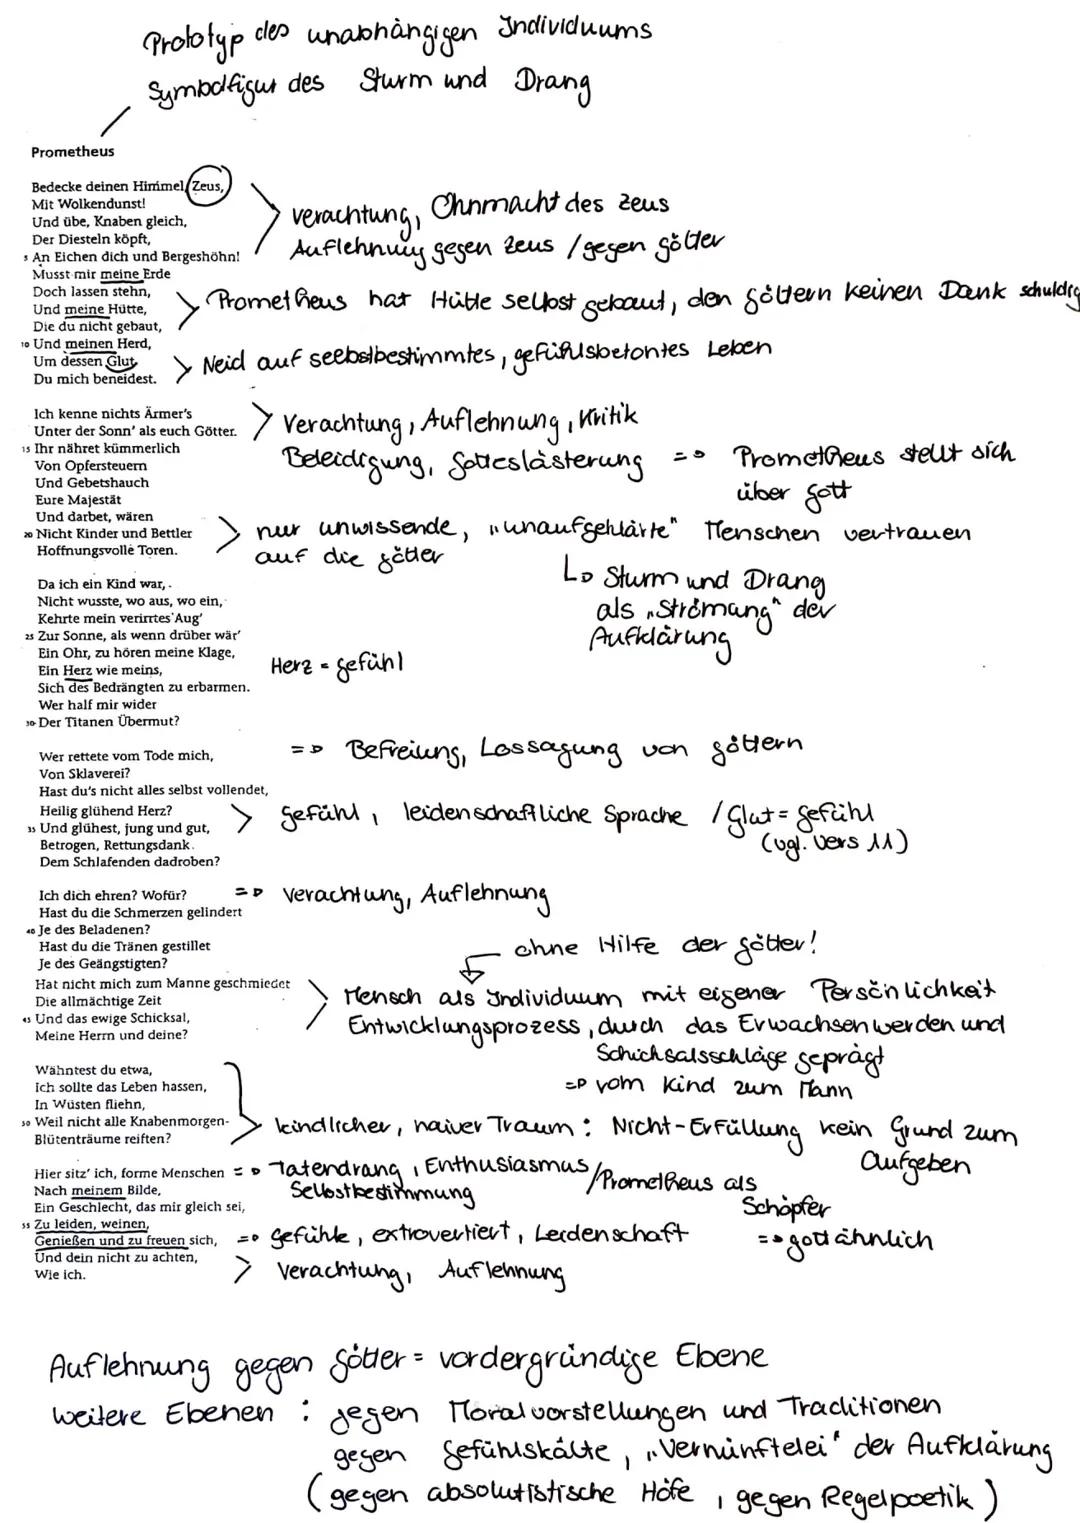 Prototyp des unabhängigen Individuums
Symbolfigur des Sturm und Drang
Prometheus
Bedecke deinen Himmel, Zeus,
Mit Wolkendunst!
Und übe, Knaben gleich,
Der Diesteln köpft,
5 An Eichen dich und Bergeshöhn!
Musst mir meine Erde
Doch lassen stehn,
Und meine Hütte,
Die du nicht gebaut,
10 Und meinen Herd,
Um dessen Glut
Du mich beneidest.
Verachtung, Ohnmacht des Zeus
Auflehnung gegen Zeus / gegen Götter
Prometheus hat Hütte selbst gebaut, den Göttern keinen Dank schuldig
Neid auf seebstbestimmtes, gefühlsbetontes Leben
Ich kenne nichts Ärmer's
Unter der Sonn' als euch Götter.
15 Ihr nähret kümmerlich
Von Opfersteuern
Und Gebetshauch
Eure Majestät
Und darbet, wären
20 Nicht Kinder und Bettler
Hoffnungsvolle Toren.
Verachtung, Auflehnung, Kritik
Beleidigung, Gotteslästerung => Prometheus stellt sich
über Gott
nur unwissende, "unaufgeklärte" Menschen vertrauen
auf die Götter
↳ Sturm und Drang
als "Strömang" der
Aufklärung
Da ich ein Kind war,
Nicht wusste, wo aus, wo ein,
Kehrte mein verirrtes Aug'
25 Zur Sonne, als wenn drüber wär'
Ein Ohr, zu hören meine Klage,
Ein Herz wie meins,
Sich des Bedrängten zu erbarmen.
Wer half mir wider
30 Der Titanen Übermut?
Herz = Gefühl
Wer rettete vom Tode mich,
Von Sklaverei?
Hast du's nicht alles selbst vollendet,
Heilig glühend Herz?
35 Und glühest, jung und gut,
Betrogen, Rettungsdank
Dem Schlafenden dadroben?
=> Befreiung, Lossagung von Göttern
Gefühl, leidenschaftliche Sprache / Glut = Gefühl
(vgl. Vers 11)
Ich dich ehren? Wofür?
Hast du die Schmerzen gelindert
40 Je des Beladenen?
Hast du die Tränen gestillet
Je des Geängstigten?
Hat nicht mich zum Manne geschmiedet
Die allmächtige Zeit
45 Und das ewige Schicksal,
Meine Herrn und deine?
=> Verachtung, Auflehnung
ohne Hilfe der Götter!
Mensch als Individuum mit eigener Persönlichkeit
Entwicklungsprozess, durch das Erwachsenwerden und
Schicksalsschläge geprägt
=> vom Kind zum Mann
Wähntest du etwa,
Ich sollte das Leben hassen,
In Wüsten fliehn,
50 Weil nicht alle Knabenmorgen-
Blütenträume reiften?
kindlicher, naiver Traum: Nicht-Erfüllung kein Grund zum
Aufgeben
Hier sitz' ich, forme Menschen
Nach meinem Bilde,
Ein Geschlecht, das mir gleich sei,
55 Zu leiden, weinen,
Genießen und zu freuen sich,
Und dein nicht zu achten,
Wie ich.
=> Tatendrang, Enthusiasmus / Prometheus als
Selbstbestimmung
Schöpfer
=> gottähnlich
=> Gefühle, extrovertiert, Leidenschaft
Verachtung, Auflehnung
Auflehnung gegen Götter = vordergründige Ebene
weitere Ebenen : gegen Moralvorstellungen und Traditionen
gegen Gefühlskälte, "Vernünftelei" der Aufklärung
(gegen absolutistische Höfe, gegen Regelpoetik)